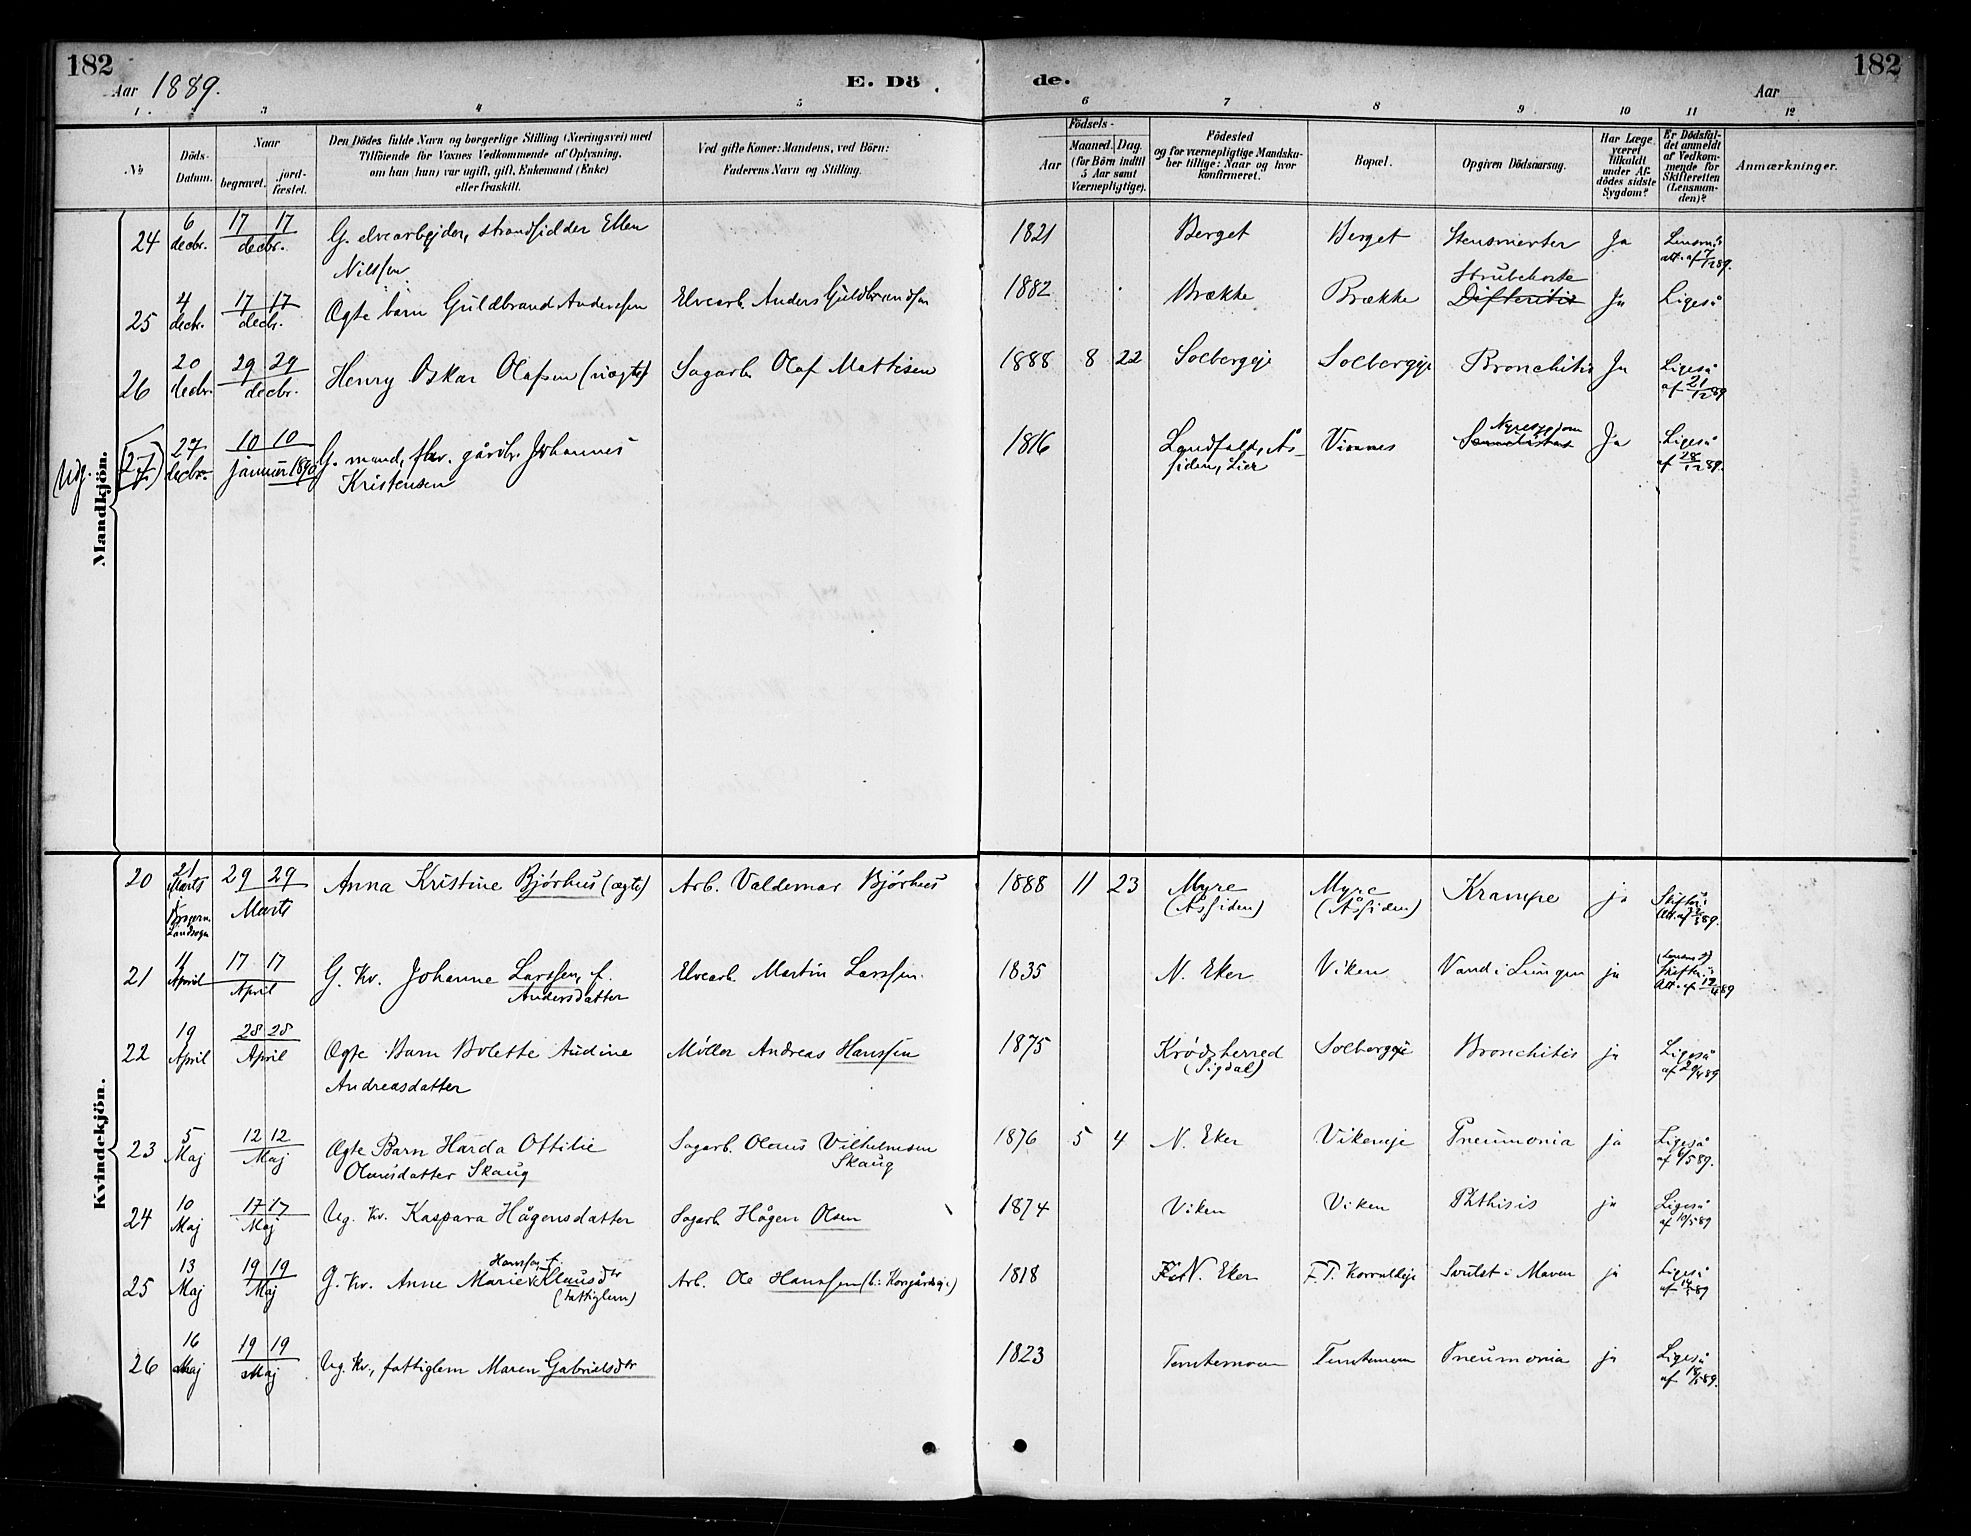 182
182
Aar 1889.
E. Dö
de.
Aar
1. 2. 3 4 5 6 7 8 9 10 11 12
№
Döds-Datum.
Naar
begravet.
jord-fæstet.
Den Dödes fulde Navn og borgerlige Stilling (Næringsvei) med
Tilföiende for Voxnes Vedkommende af Oplysning,
om han (hun) var ugift, gift, Enkemand (Enke)
eller fraskilt.
Ved gifte Koner: Mandens, ved Börn:
Faderens Navn og Stilling.
Födsels-
Aar
Maaned. Dag.
(for Börn indtil
5 Aar samt
Værnepligtige).
Födested
og for værnepligtige Mandska-
ber tillige: Naar og hvor
konfirmeret.
Bopæl.
Opgiven Dödsaarsag.
Har Læge
været
tilkaldt
under Af-
dödes sidste
Sygdom?
Er Dödsfal-
det anmeldt
af Vedkom-
mende for
Skifteretten
(Lensman-
den)?
Anmærkninger.
Mandkjön.
24 6 decbr. 17 17 decbr. G. elvearbejder, strandsidder Ellen Nilssen 1821 Berget Berget Ja
af 7/12 89.
25 4 decbr. 17 17 decbr. Ægte barn Guldbrand Anderssen Elvearb. Anders Guldbrandsen 1882 Brække Brække Strubehoste Difteritis Ja Ligeså
26 20 decbr. 29 29 decbr. Henry Oskar Olafsen (uægte) Sagarb. Olaf Mattisen 1888 8 22 Solbergeje Solbergeje Bronchitis Ja Ligeså
af 21/12 89
Udg. (27) 27 decbr. 10 10 januar 1890 G. mand, flv. gårdbr. Johannes Kristensen 1816 Landfald, Åssiden, Lier Vinnes Nyresygdom Ja Ligeså
af 28/12 89.
Kvindekjön.
20 21 Marts i Kragern Landsogn 29 29 Marts Anna Kristine Bjørhus (ægte) Arb. Valdemar Bjørhus 1888 11 23 Myre (Åssiden) Myre (Åssiden) Krampe ja
21 11 April 17 17 April G. Kv. Johanne Larssen, f. Andersdatter Elvearb. Martin Larssen. 1835 N. Eker Viken Vand i Lungen ja
Att. af 12/4 89
22 19 April 28 28 April Ægte Barn Bolette Audine Andreasdatter Møller Andreas Hanssen 1875 Krødsherred (Sigdal) Solbergeje Bronchitis ja Ligeså
af 20/4 89
23 5 Maj 12 12 Maj Ægte Barn Harda Ottilie Olausdatter Skaug Sagarb. Olaus Vilhelmsen Skaug 1876 5 4 N. Eker Vikeneje Pneumonia ja Ligeså
af 6/5 89.
24 10 Maj 17 17 Maj Ug. Kv. Kaspara Hågensdatter Sagarb. Hågen Olsen 1874 Viken Viken Phthisis ja Ligeså
af 10/5 89
25 13 Maj 19 19 Maj G. Kv. Anne Marie Hanssen, f. Klausdtr (fattiglem) Arb. Ole Hanssen 1818 N. Eker Svulst i Maven ja Ligeså
af 14/5 89
26 16 Maj 19 19 Maj Ug. Kv., fattiglem Maren Gabrielsdtr 1823 Temtemoen Temtemoen Pneumonia ja Ligeså
af 18/5 89.